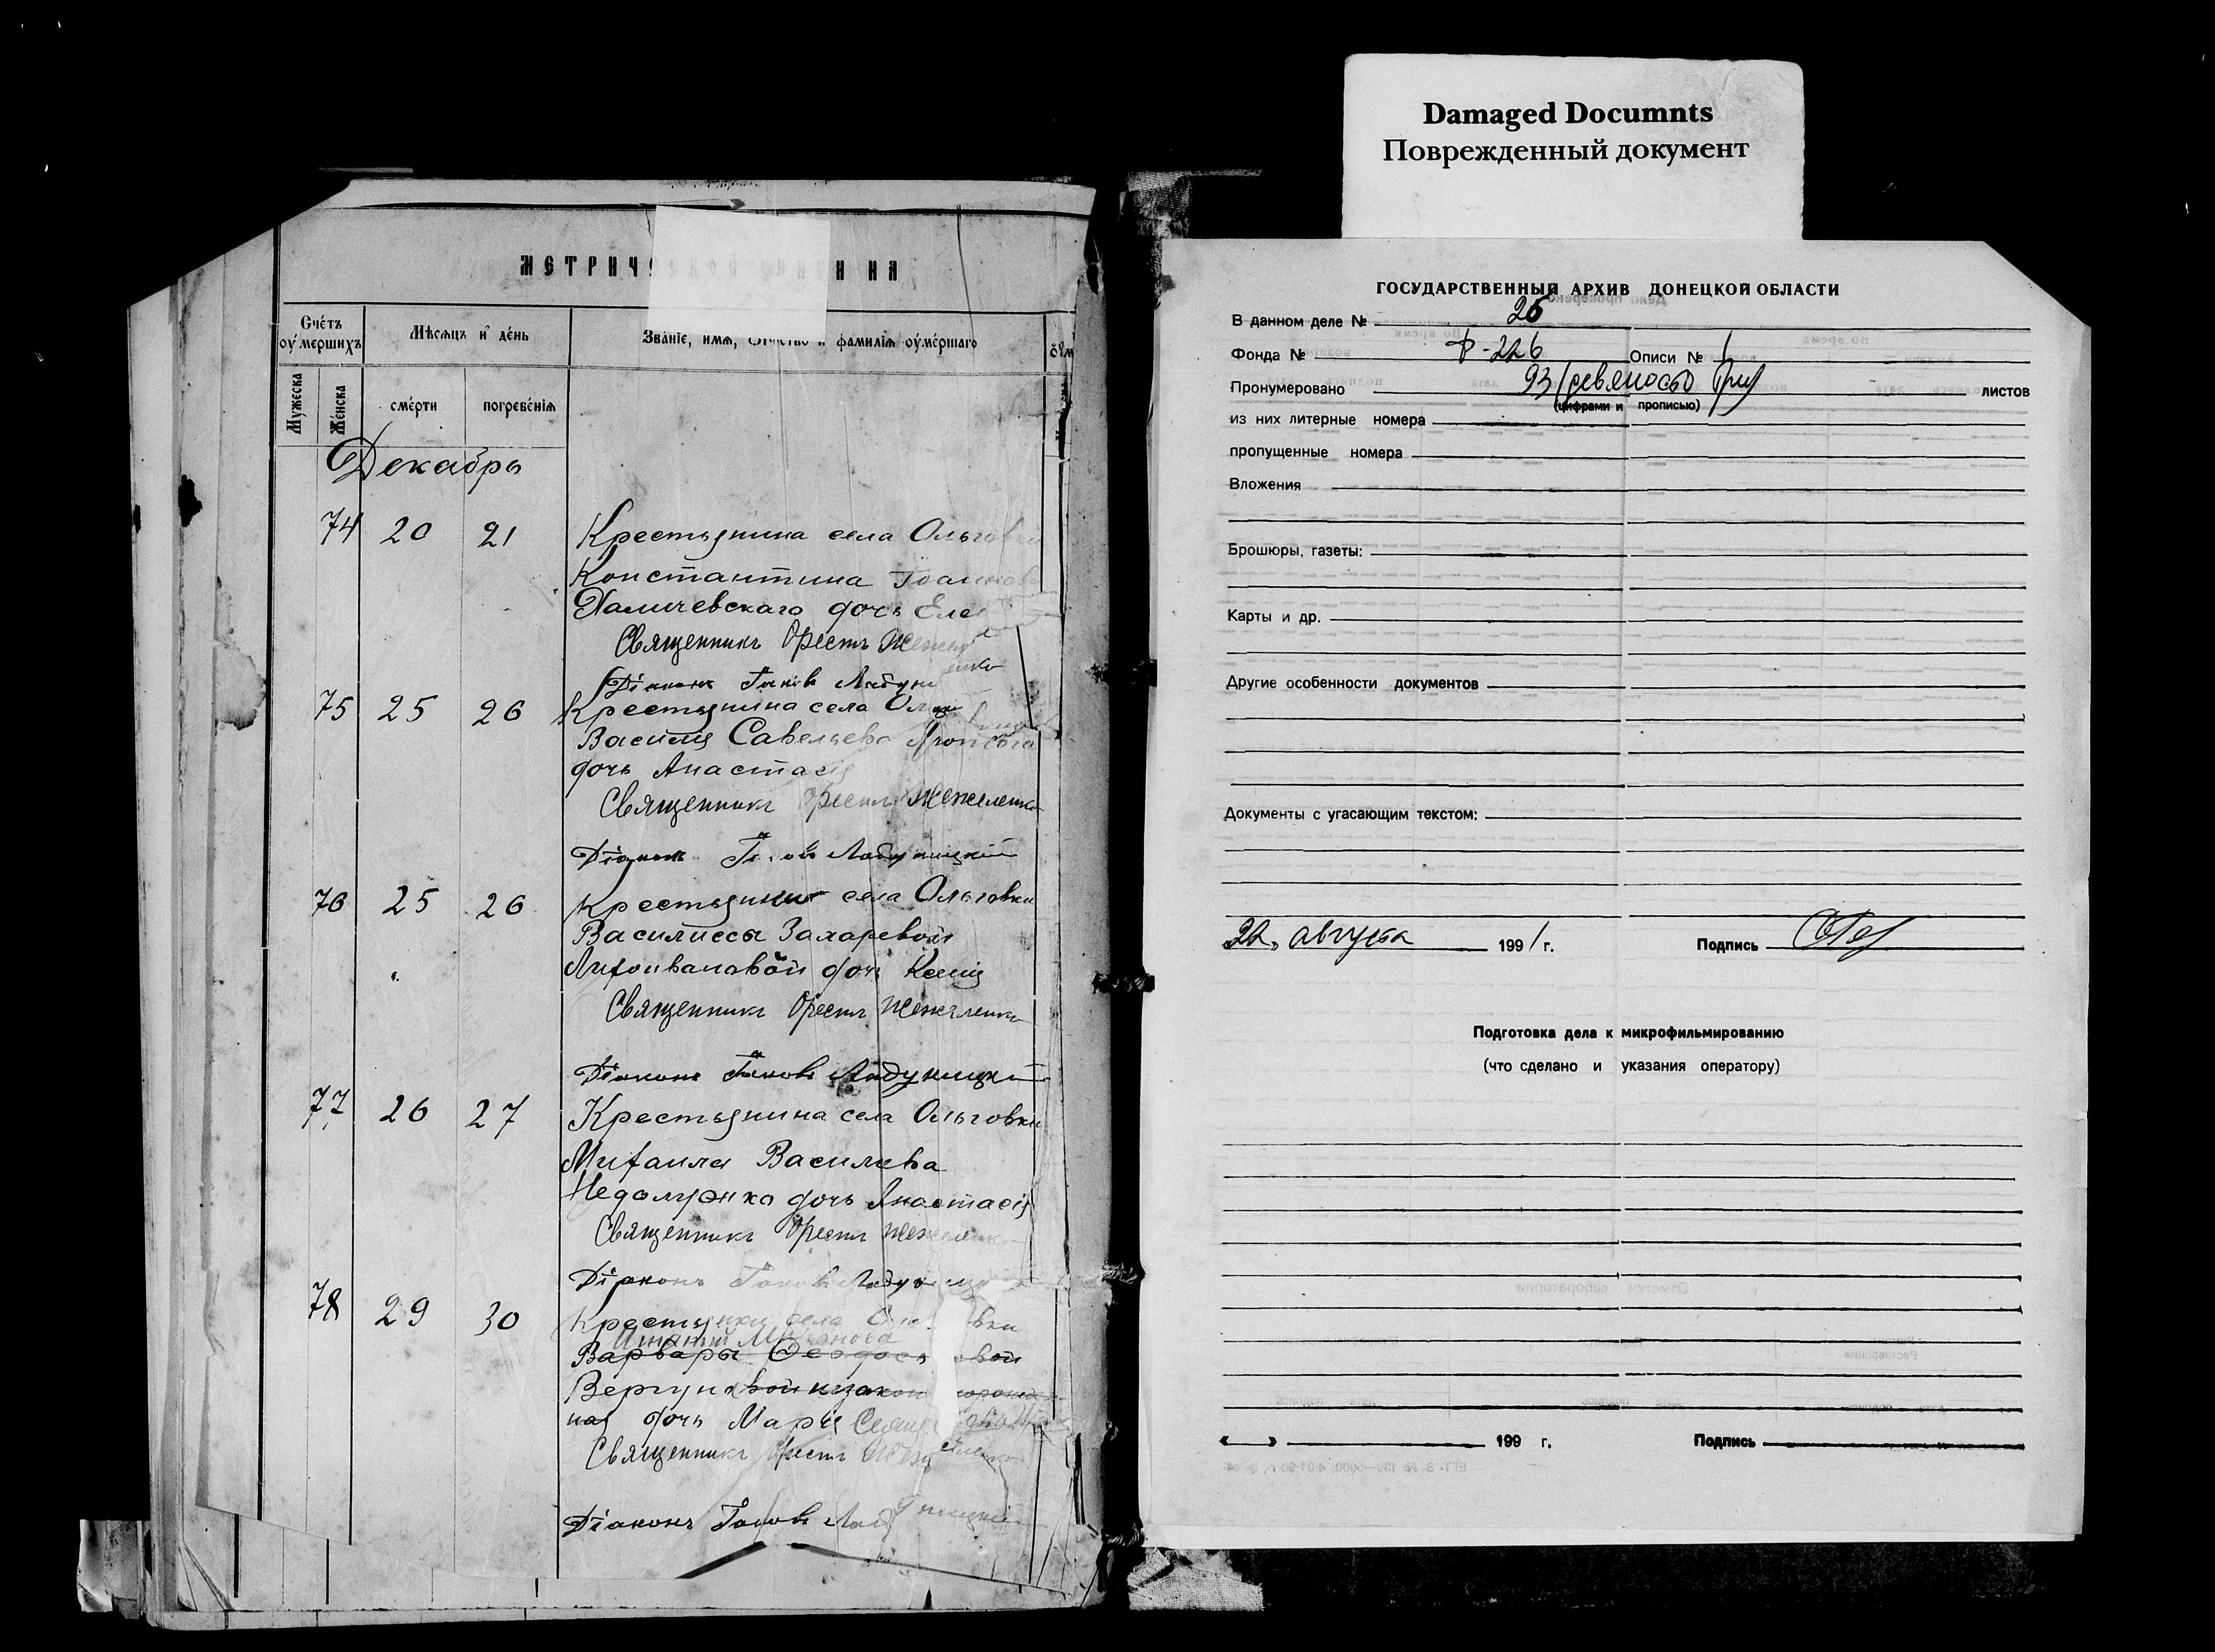 Damaged Documnts
Поврежденный документ
МЕТРИЧ
Счетъ оумершихъ
Мужеска
Женска
Мѣсяцъ и день
смерти
погребенія
Званіе, имя, отчество и фамилія оумершаго
Декабрь
74 20 21 Крестьянина села Ольговки
Константина Іоаннова
дочь
Священникъ Орестъ
Діаконъ Іаковъ
75 25 26 Крестьянина села
Василія Савельева
дочь Анастасія
Священникъ Орестъ Нежеленко
Діаконъ Іаковъ Ладуницкій
76 25 26 Крестьянки села Ольговки
Василиссы Захаревой
Литовановой дочь Ксенія
Священникъ Орестъ Нежеленко
Діаконъ Іаковъ Ладуницкій
77 26 27 Крестьянина села Ольговки
Михаила Василіева
дочь Анастасія
Священникъ Орестъ Нежеленко
Діаконъ Іаковъ
78 29 30 Крестьянки села
Варвары
ная дочь Марія
Священникъ Орестъ
Діаконъ Іаковъ Ладуницкій
ГОСУДАРСТВЕННЫЙ АРХИВ ДОНЕЦКОЙ ОБЛАСТИ
В данном деле № 26
Фонда № Ф-226 Описи № 1
Пронумеровано 93 (девяносто три) листов
(цифрами и прописью)
из них литерные номера
пропущенные номера
Вложения
Брошюры, газеты:
Карты и др.
Другие особенности документов
Документы с угасающим текстом:
22. августа 1991 г. Подпись
Подготовка дела к микрофильмированию
(что сделано и указания оператору)
« » 199 г. Подпись